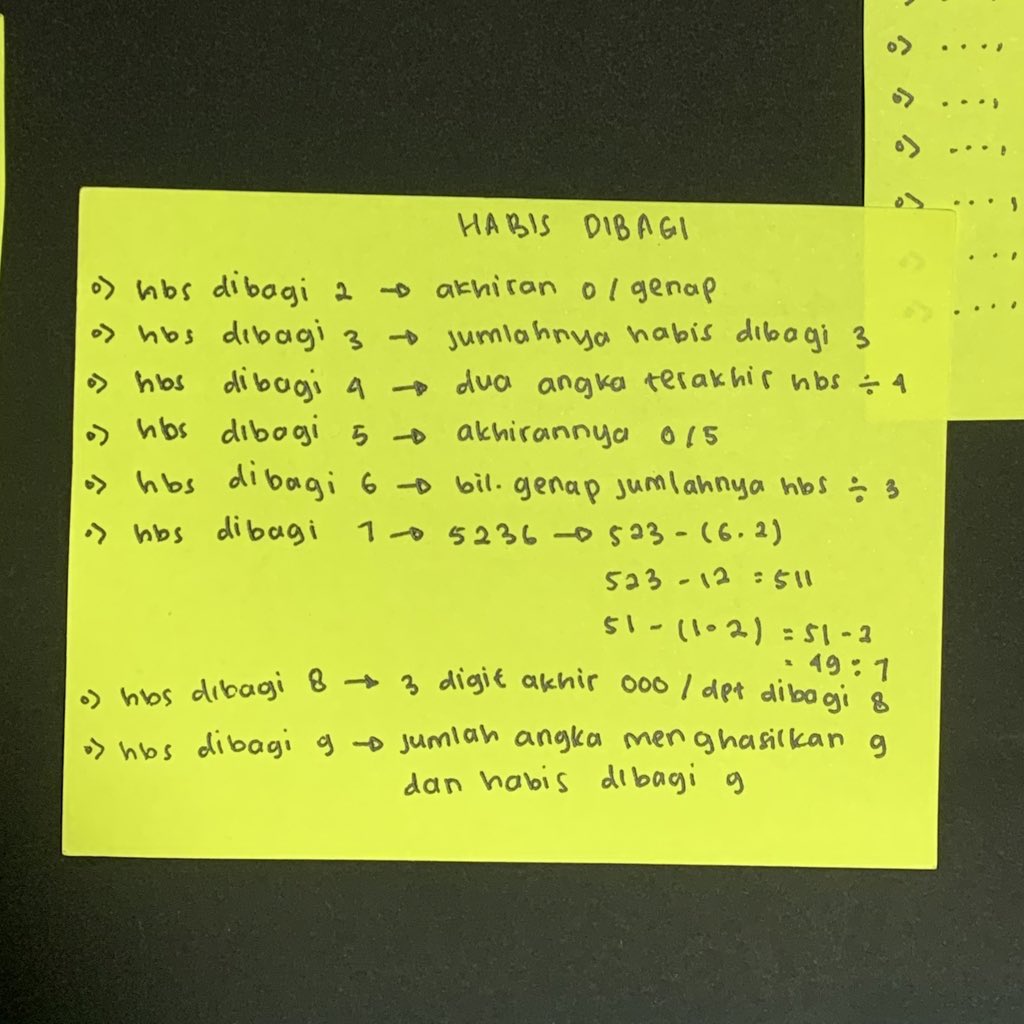 HABIS DIBAGI
•) hbs dibagi 2 → akhiran 0 / genap
•) hbs dibagi 3 → jumlahnya habis dibagi 3
•) hbs dibagi 4 → dua angka terakhir hbs ÷ 4
•) hbs dibagi 5 → akhirannya 0/5
•) hbs dibagi 6 → bil. genap jumlahnya hbs ÷ 3
•) hbs dibagi 7 → 5236 → 523 - (6.2)
523 - 12 = 511
51 - (1.2) = 51 - 2
= 49 : 7
•) hbs dibagi 8 → 3 digit akhir 000 / dpt dibagi 8
•) hbs dibagi 9 → jumlah angka menghasilkan 9
dan habis dibagi 9
•) ....,
•) ...,
•) ....,
•) ....,
...,
....